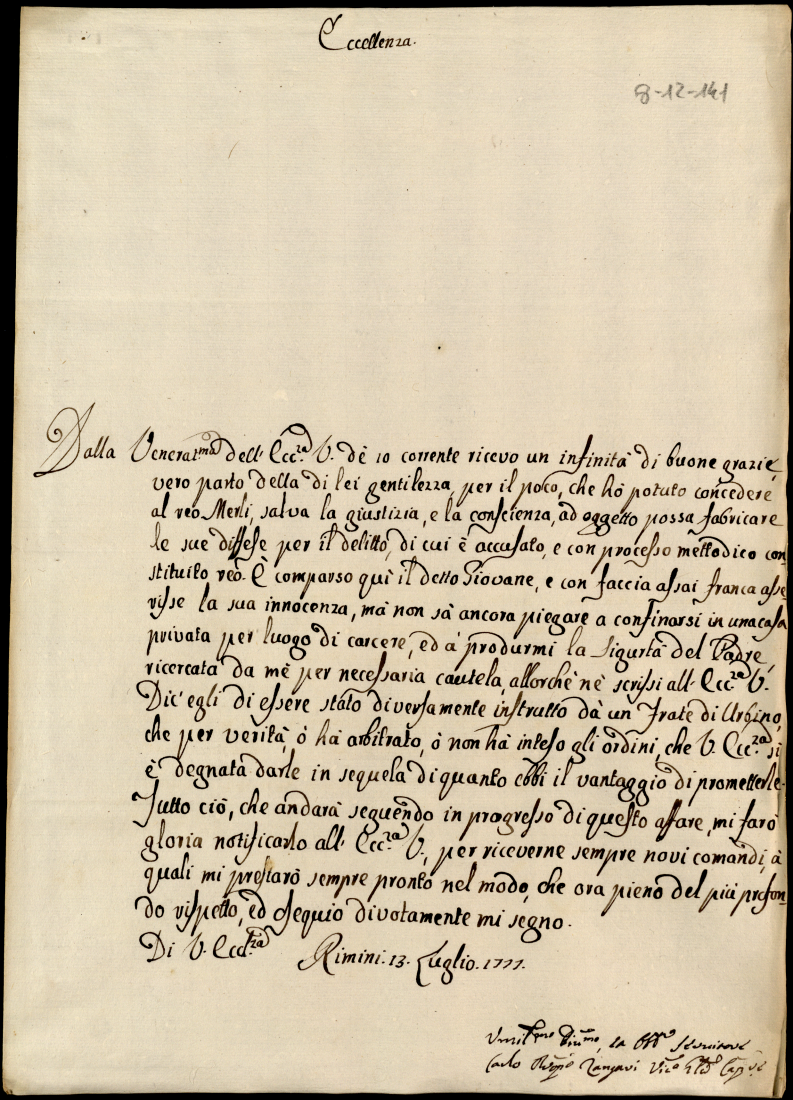 Eccellenza.
8-12-141
Dalla Venerat.ma dell'Ecc.za V. dè 10 corrente ricevo un infinità di buone grazie,
vero parto della di lei gentilezza, per il poco, che hò potuto concedere
al reo Merli, salva la giustizia, e la conscienza, ad oggetto possa fabricare
le sue diffese per il delitto, di cui è accusato, e con processo mettodico con=
stituito reo. È comparso quì il detto Giovane, e con faccia assai franca asse=
risse la sua innocenza, mà non sà ancora piegare a confinarsi in una casa
privata per luogo di carcere, ed à produrmi la sigurtà del Padre,
ricercata da mè per necessaria cautela, allorchè nè scrissi all'Ecc.za V.
Dic'egli di essere stato diversamente instrutto dà un Frate di Urbino,
che per verità, ò hà arbitrato, ò non hà inteso gli ordini, che V. Ecc.za si
è degnata darle in sequela di quanto ebbi il vantaggio di prometterle.
Tutto ciò, che andarà seguendo in progresso di questo affare, mi farò
gloria notificarlo all'Ecc.za V., per riceverne sempre novi comandi, à
quali mi prestarò sempre pronto nel modo, che ora pieno del più profon=
do rispetto, ed ossequio divotamente mi segno.
Di V. Ecc.za Rimini. 13. Luglio. 1777.
Umil.mo Div.mo, ed Obb.o Servitore
Carlo Zangari